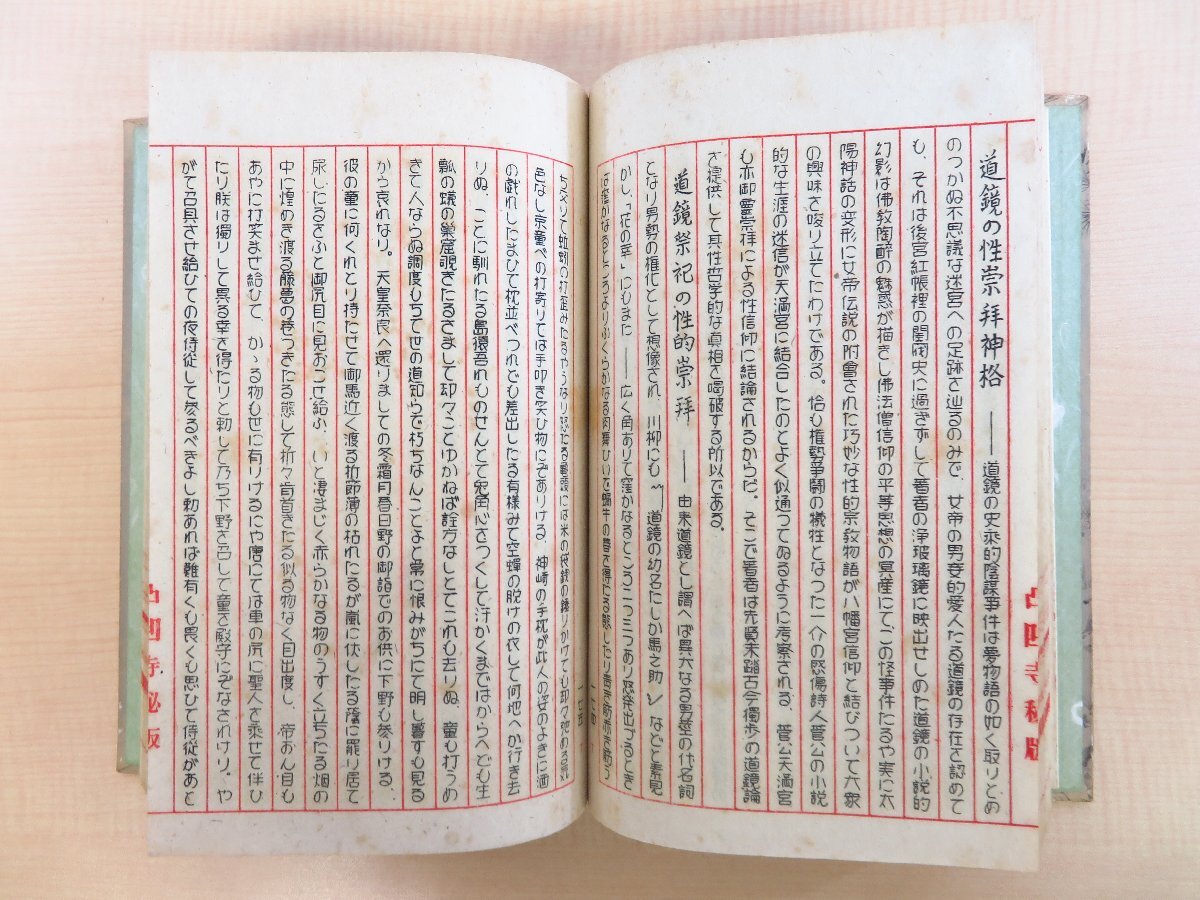 道鏡の性崇拜神格 ―― 道鏡の史乘的陰謀事件は夢物語の如く取りとめ
のつかぬ不思議な迷宮への足跡を辿るのみで、女帝の男妾的愛人たる道鏡の存在を認めて
も、それは後宮紅帳裡の閨閥史に過ぎずして著者の浄玻璃鏡に映出せしめた道鏡の小説的
幻影は佛教陶酔の魅惑が描きし佛法僧信仰の平等思想の冥産にて、この怪事件たるや実に太
陽神話の変形に女帝伝説の附會された巧妙な性的宗教物語が八幡宮信仰と結びついて大衆
の興味を唆り立てたわけである。恰も権勢爭鬪の犠牲となつた一介の怒傷詩人菅公の小説
的な生涯の迷信が天滿宮に結合したのとよく似通つてゐるように考察される。菅公天滿宮
も亦御靈崇拜による性信仰に結論されるからだ。そこで著者は先賢未踏古今獨歩の道鏡論
を提供して其性哲学的な真相を喝破する所以である。
道鏡祭祀の性的崇拜 ―― 由來道鏡とし謂へば異大なる男莖の代名詞
となり男勢の権化として想像され、川柳にも〝道鏡の幼名たしか馬之助〟などと素見
かし、「花の幸」にもまた ―― 広く角ありて窪かなるところ二つ三つあり怒発出づるとき
は窪かなるところよりふくらかなる肉舞ひいで蝸牛の春を得たる態したり
色なし京童べの打寄りては手叩き笑ひ物にぞありける。神崎の手枕が此人の姿のよきに洒
の戯れしたまひて枕並べつれでも差出したる有様みて空蟬の脱けの衣して何地へか行き去
りぬ、ここに馴れたる島猿吾れものせんとて兔角心さつくして汗かくまではからへども生
瓢の蟻の巣窟覗きたるさまして却々ことゆかねば詮方なしとてこれも去りぬ、童も打うめ
きて人ならぬ調度もちて世の道知らで朽ちなんことよと枭に恨みがちにて明し暮すも見る
から哀れなり。天皇奈良へ還りましての冬霜月春日野の御詣でのお供に下野も參りける。
彼の童に何くれとり持たせて御馬近く渡る折節薄の枯れたるが嵐に伏したる蔭に罷り居て
尿したるをふと御尻目に見おこせ給ふ、いと凄まじく赤らかなる物のうすく立ちたる烟の
中に煌めき渡る藤蔓の巻つきたる態して折々肯首きたる似る物なく目出度し、帝おん目も
あやに打笑ませ給ひて、かゝる物も世に有りけるにや唐にては車の尻に聖人を乘せて伴ひ
たり朕は獨りして異る幸を得たりと勅して乃ち下野を召して童を殿守にぞなされけり。や
がて召具させ給ひての夜侍従して參るべきよし勅あれば難有くも畏くも思ひて侍従があと
凸凹寺秘版